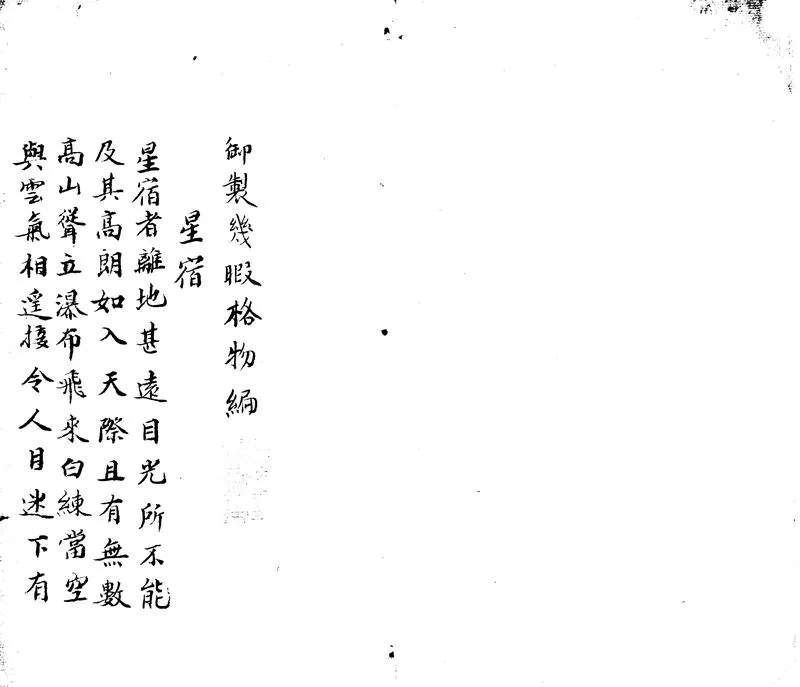 御製幾暇格物編
星宿
星宿者離地甚遠目光所不能
及其高朗如入天際且有無數
高山聳立瀑布飛來白練當空
與雲氣相遥接令人目迷下有